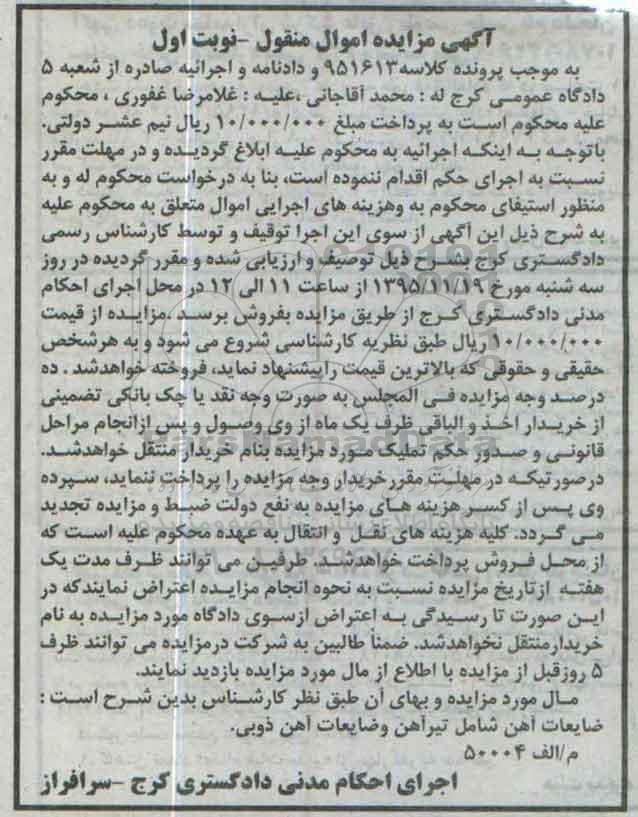 آگهی مزایده اموال منقول -نوبت اول
به موجب پرونده کلاسه۹۵۱۶۱۳ و دادنامه و اجرائیه صادره از شعبه ۵
دادگاه عمومی کرج له : محمد آقاجانی ،علیه : غلامرضا غفوری ، محکوم
علیه محکوم است به پرداخت مبلغ ۱۰/۰۰۰/۰۰۰ ریال نیم عشر دولتی.
باتوجه به اینکه اجرائیه به محکوم علیه ابلاغ گردیده و در مهلت مقرر
نسبت به اجرای حکم اقدام ننموده است، بنا به درخواست محکوم له و به
منظور استیفای محکوم به وهزینه های اجرایی اموال متعلق به محکوم علیه
به شرح ذیل این آگهی از سوی این اجرا توقیف و توسط کارشناس رسمی
دادگستری کرج بشرح ذیل توصیف و ارزیابی شده و مقرر گردیده در روز
سه شنبه مورخ ۱۳۹۵/۱۱/۱۹ از ساعت ۱۱ الی ۱۲ در محل اجرای احکام
مدنی دادگستری کرج از طریق مزایده بفروش برسد .مزایده از قیمت
۱۰/۰۰۰/۰۰۰ ریال طبق نظریه کارشناسی شروع می شود و به هرشخص
حقیقی و حقوقی که بالاترین قیمت راپیشنهاد نماید، فروخته خواهدشد . ده
درصد وجه مزایده فی المجلس به صورت وجه نقد یا چک بانکی تضمینی
از خریدار اخذ و الباقی ظرف یک ماه از وی وصول و پس ازانجام مراحل
قانونی و صدور حکم تملیک مورد مزایده بنام خریدار منتقل خواهدشد.
درصورتیکه در مهلت مقررخریدار وجه مزایده را پرداخت ننماید، سپرده
وی پس از کسر هزینه های مزایده به نفع دولت ضبط و مزایده تجدید
می گردد. کلیه هزینه های نقل و انتقال به عهده محکوم علیه است که
از محل فروش پرداخت خواهدشد. طرفین می توانند ظرف مدت یک
هفته ازتاریخ مزایده نسبت به نحوه انجام مزایده اعتراض نمایندکه در
این صورت تا رسیدگی به اعتراض ازسوی دادگاه مورد مزایده به نام
خریدارمنتقل نخواهدشد. ضمناً طالبین به شرکت درمزایده می توانند ظرف
۵ روزقبل از مزایده با اطلاع از مال مورد مزایده بازدید نمایند.
مال مورد مزایده و بهای آن طبق نظر کارشناس بدین شرح است :
ضایعات آهن شامل تیرآهن وضایعات آهن ذوبی.
م/الف ۵۰۰۰۴
اجرای احکام مدنی دادگستری کرج -سرافراز
ParsNamadData